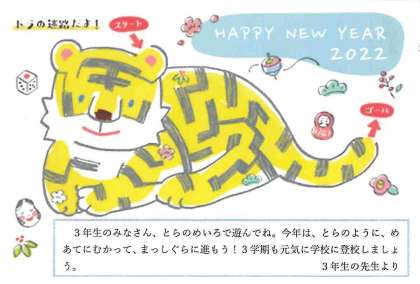 トラの迷路だよ！
スタート
HAPPY NEW YEAR
2022
ゴール
３年生のみなさん、とらのめいろで遊んでね。今年は、とらのように、め
あてにむかって、まっしぐらに進もう！３学期も元気に学校に登校しましょ
う。
３年生の先生より